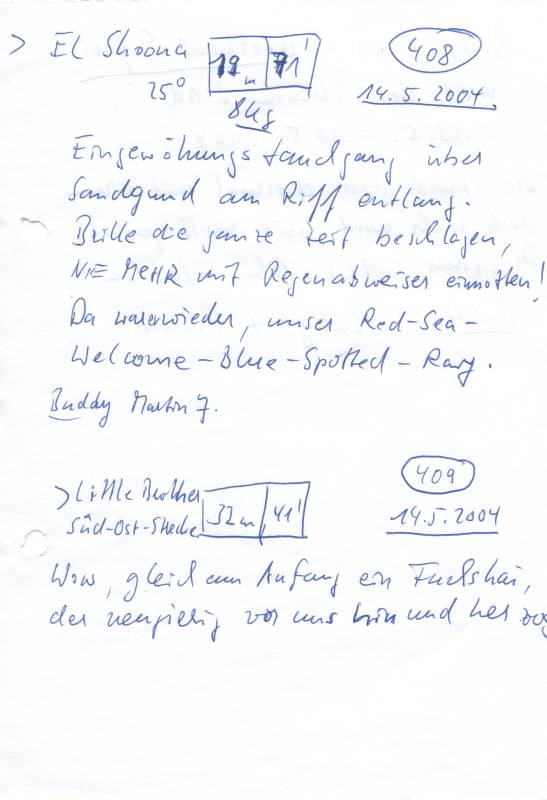 > El Shoona 19m 71' 408
25° 8kg 14.5.2004
Eingewöhungstauchgang über
Sandgrund am Riff entlang.
Brille die ganze Zeit beschlagen,
NIE MEHR mit Regenabweiser einmotten!
Da war er wieder, unser Red-Sea-
Welcome-Blue-Spotted-Ray.
Buddy Martin J.
> Little Brother 32m 41' 409
Süd-Ost-Strecke 14.5.2004
Wow, gleich am Anfang ein Fuchshai,
der neugierig vor uns hin und her zog